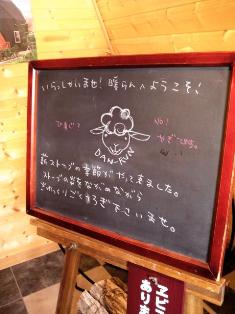 いらっしゃいませ！暖らんへようこそ！
ひつじ？
NO！
やぎです。
DAN-KUN
薪ストーブの季節がやって来ました。
ストーブの炎をながめながら
ごゆっくりおくつろぎ下さいませ。
あります